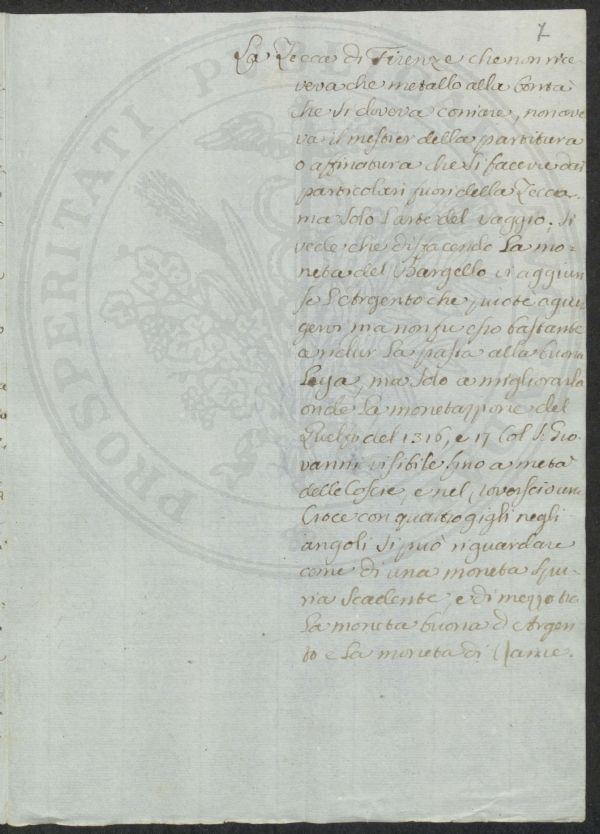 7
La Zecca di Firenze che non rice
veva che metallo alla bontà
che si doveva coniare, non ave
va il mestier della partitura
o affinatura che si faceva dai
particolari fuori della Zecca
ma solo l'arte del saggio. Si
vede che disfacendo la mo=
neta del Bargello vi aggiun
se l'Argento che puote agiu
gervi ma non fu esso bastante
a ridur la pasta alla buona
Lega, ma solo a migliorarla
onde la monetazione del
Guelfo del 1316, e 17 Col S. Gio
vanni visibile fino a metà
delle Coscie, e nel rovescio una
Croce con quattro gigli negli
angoli si può riguardare
come di una moneta spu
ria scadente, e di mezzo tra
la moneta buona d'Argen
to e la moneta di Rame.
PROSPERITATI PUBLICAE